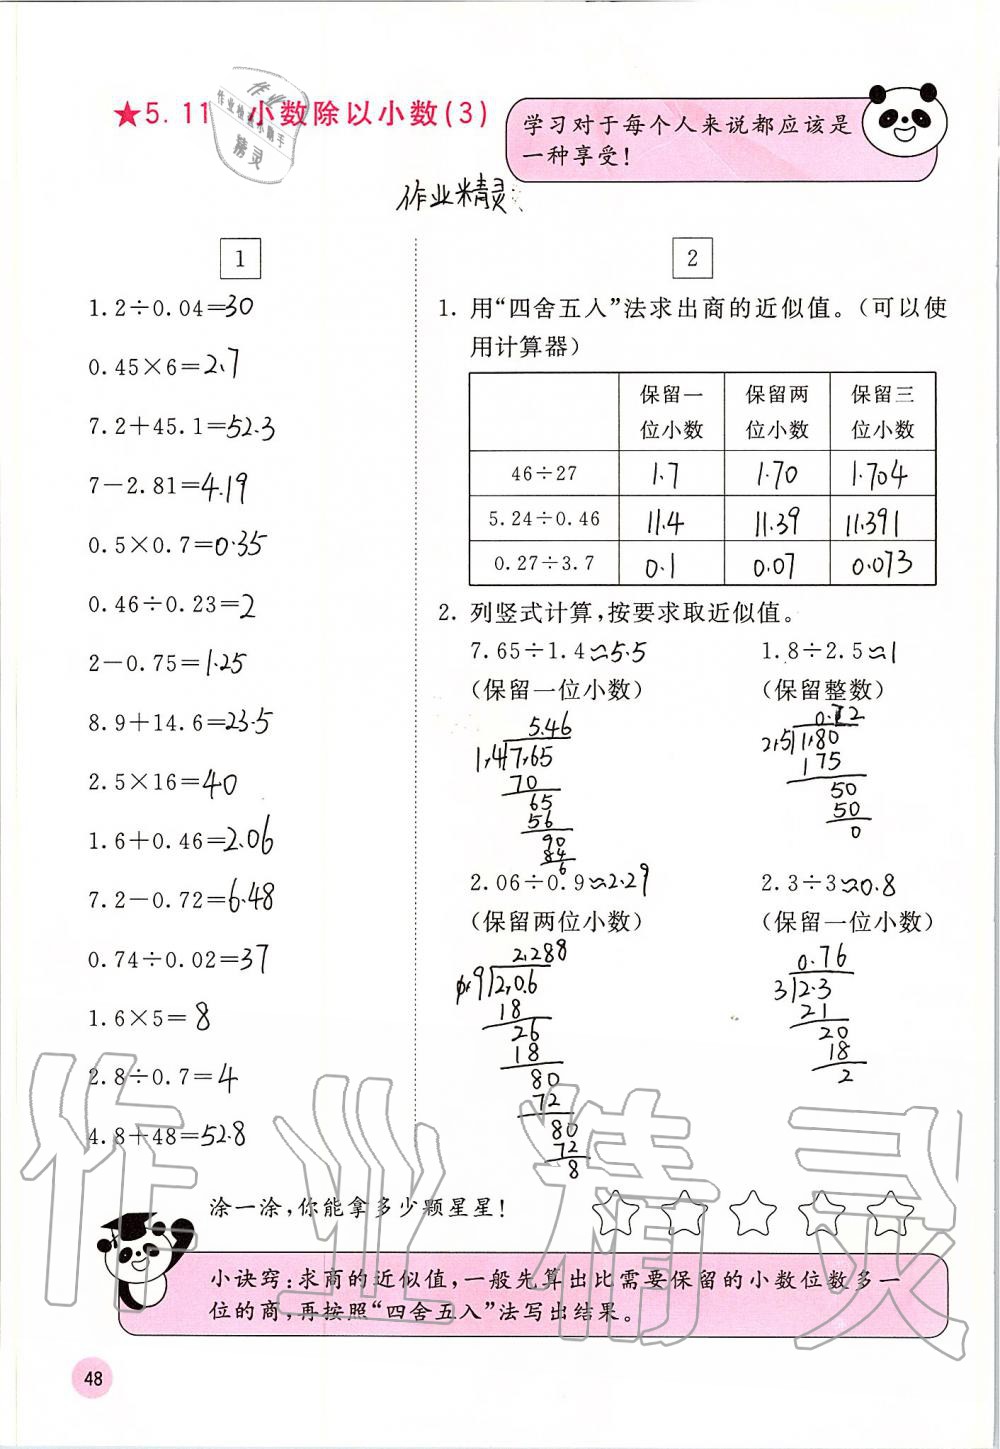 ★5.11 小数除以小数(3)
学习对于每个人来说都应该是
一种享受!
作业精灵
1
1.2÷0.04=30
0.45×6=2.7
7.2+45.1=52.3
7-2.81=4.19
0.5×0.7=0.35
0.46÷0.23=2
2-0.75=1.25
8.9+14.6=23.5
2.5×16=40
1.6+0.46=2.06
7.2-0.72=6.48
0.74÷0.02=37
1.6×5=8
2.8÷0.7=4
4.8+48=52.8
2
1. 用“四舍五入”法求出商的近似值。(可以使
用计算器)
保留一位小数 保留两位小数 保留三位小数
46÷27 1.7 1.70 1.704
5.24÷0.46 11.4 11.39 11.391
0.27÷3.7 0.1 0.07 0.073
2. 列竖式计算,按要求取近似值。
7.65÷1.4≈5.5 1.8÷2.5≈1
(保留一位小数) (保留整数)
5.46
1.4 7.65
70
65
56
90
84
6
0.72
2.5 1.80
175
50
50
0
2.06÷0.9≈2.29 2.3÷3≈0.8
(保留两位小数) (保留一位小数)
2.288
0.9 2.0.6
18
26
18
80
72
80
72
8
0.76
3 2.3
21
20
18
2
涂一涂,你能拿多少颗星星!
小诀窍:求商的近似值,一般先算出比需要保留的小数位数多一
位的商,再按照“四舍五入”法写出结果。
48
作业精灵